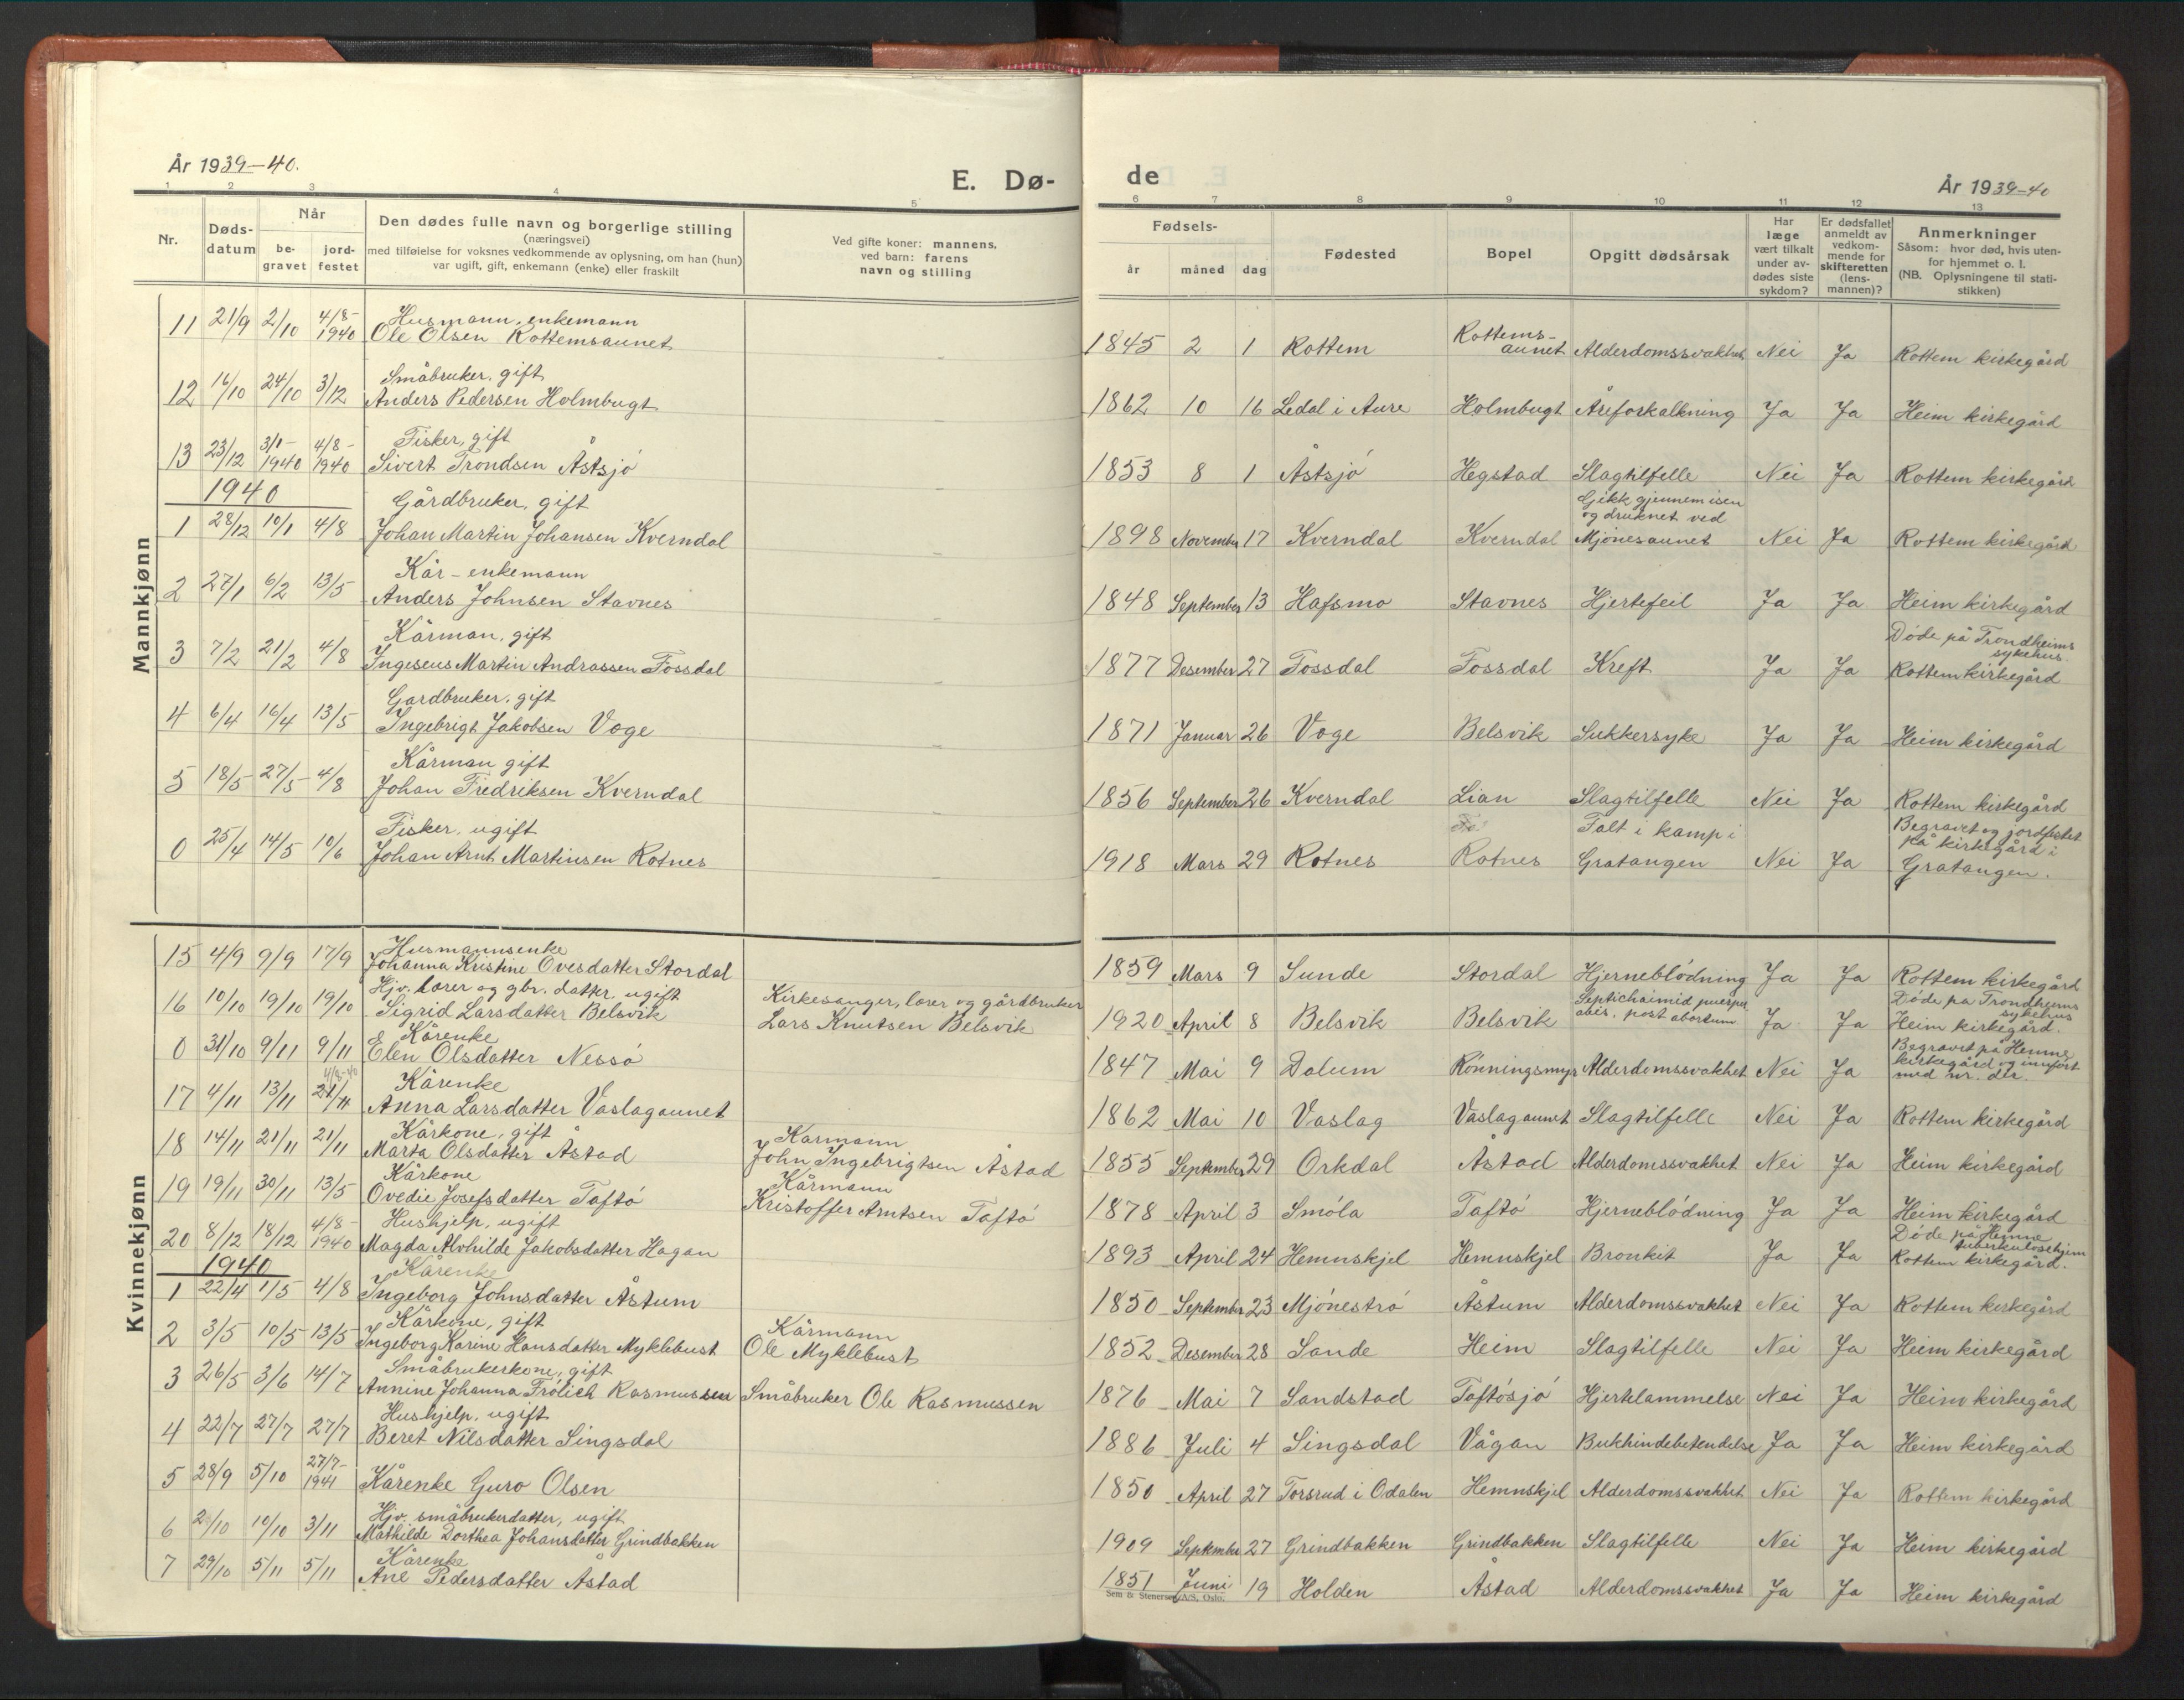 År 1939-40.
E. Dø-
de
År 1939-40
1 2 3 4 5 6 7 8 9 10 11 12 13
Nr.
Døds-
datum
Når
be-
gravet
jord-
festet
Den dødes fulle navn og borgerlige stilling
(næringsvei)
med tilføielse for voksnes vedkommende av oplysning, om han (hun)
var ugift, gift, enkemann (enke) eller fraskilt
Ved gifte koner: mannens,
ved barn: farens
navn og stilling
Fødsels-
år måned dag
Fødested
Bopel
Opgitt dødsårsak
Har
læge
vært tilkalt
under av-
dødes siste
sykdom?
Er dødsfallet
anmeldt av
vedkom-
mende for
skifteretten
(lens-
mannen)?
Anmerkninger
Såsom: hvor død, hvis uten-
for hjemmet o. l.
(NB. Oplysningene til stati-
stikken)
Mannkjønn
11 21/9 2/10 4/8-1940 Husmann, enkemann
Ole Olsen Rottemsaunet 1845 2 1 Rottem Rottems-aunet Alderdomssvakhet Nei Ja Rottem kirkegård
12 16/10 24/10 3/12 Småbruker, gift
Anders Pedersen Holmbugt 1862 10 16 Ledal i Aure Holmbugt Åreforkalkning Ja Ja Heim kirkegård
13 23/12 3/1-1940 4/8-1940 Fisker, gift
Sivert Trondsen Åstsjø 1853 8 1 Åstsjø Hegstad Slagtilfelle Nei Ja Rottem kirkegård
1940
1 28/12 10/1 4/8 Gårdbruker, gift
Johan Martin Johansen Kverndal 1898 November 17 Kverndal Kverndal Gikk gjennem isen og druknet ved Mjønesaunet Nei Ja Rottem kirkegård
2 27/1 6/2 13/5 Kår-enkemann
Anders Johnsen Stavnes 1848 September 13 Hafsmo Stavnes Hjertefeil Ja Ja Heim kirkegård
3 7/2 21/2 4/8 Kårman, gift
Ingeseus Martin Andrassen Fossdal 1877 Desember 27 Fossdal Fossdal Kreft Ja Ja Døde på Trondheims sykehus Rottem kirkegård
4 6/4 16/4 13/5 Gardbruker, gift
Ingebrigt Jakobsen Voge 1871 Januar 26 Voge Belsvik Sukkersyke Ja Ja Heim kirkegård
5 18/5 27/5 4/8 Kårman gift
Johan Fredriksen Kverndal 1856 September 26 Kverndal Lian Slagtilfelle Nei Ja Rottem kirkegård
0 25/4 14/5 10/6 Fisker, ugift
Johan Arnt Martinsen Rotnes 1918 Mars 29 Rotnes Rotnes Falt i kamp i Gratangen Nei Ja Begravet og jordfestet på kirkegård i Gratangen.
Kvinnekjønn
15 4/9 9/9 17/9 Husmannsenke
Johanna Kristine Ovesdatter Stordal 1859 Mars 9 Sunde Stordal Hjerneblødning Ja Ja Rottem kirkegård
16 10/10 19/10 19/10 Hjv. lærer og gbr. datter, ugift
Sigrid Larsdatter Belsvik Kirkesanger, lærer og gårdbruker
Lars Knutsen Belsvik 1920 April 8 Belsvik Belsvik post abortum Ja Ja Døde på Trondheims sykehus Heim kirkegård.
0 31/10 9/11 9/11 Kårenke
Elen Olsdatter Nessø 1847 Mai 9 Dalum Rønningsmyr Alderdomssvakhet Nei Ja Begravet på Hemne kirkegård og innført med nr. der.
17 4/11 13/11 4/8-40 Kårenke
Anna Larsdatter Vaslagaunet 1862 Mai 10 Vaslag Vaslagaunet Slagtilfelle Nei Ja Rottem kirkegård
18 14/11 21/11 21/11 Kårkone, gift
Marta Olsdatter Åstad Karmann
John Ingebrigtsen Åstad 1855 September 29 Orkdal Åstad Alderdomssvakhet Nei Ja Heim kirkegård
19 19/11 30/11 13/5 Kårkone
Ovedie Josefsdatter Taftø Kårmann
Kristoffer Arntsen Taftø 1878 April 3 Smøla Taftø Hjerneblødning Ja Ja Heim kirkegård
20 8/12 18/12 4/8-1940 Hushjelp, ugift
Magda Alvhilde Jakobsdatter Hagan 1893 April 24 Hemnskjel Hemnskjel Bronkit Ja Ja Døde på Hemne tuberkulosehjem Rottem kirkegård.
1940
1 22/4 1/5 4/8 Kårenke
Ingeborg Johnsdatter Åstum 1850 September 23 Mjønestrø Åstum Alderdomssvakhet Nei Ja Rottem kirkegård
2 3/5 10/5 13/5 Kårkone, gift
Ingeborg Karine Hansdatter Myklebust Kårmann
Ole Myklebust 1852 Desember 28 Sande Heim Slagtilfelle Nei Ja Heim kirkegård
3 26/5 3/6 14/7 Småbrukerkone, gift
Annine Johanna Frølich Rasmussen Småbruker Ole Rasmussen 1876 Mai 7 Sandstad Taftøsjø Hjertelammelse Nei Ja Heim kirkegård
4 22/7 27/7 27/7 Hushjelp, ugift
Beret Nilsdatter Singsdal 1886 Juli 4 Singsdal Vågan Bukhindebetendelse Ja Ja Heim kirkegård
5 28/9 5/10 27/7-1941 Kårenke Guro Olsen 1850 April 27 Torsrud i Odalen Hemnskjel Alderdomssvakhet Nei Ja Rottem kirkegård
6 2/10 10/10 3/11 Hjv. småbrukerdatter, ugift
Mathilde Dorthea Johansdatter Grindbakken 1909 September 27 Grindbakken Grindbakken Slagtilfelle Nei Ja Heim kirkegård
7 29/10 5/11 5/11 Kårenke
Ane Pedersdatter Åstad 1851 Juni 19 Holden Åstad Alderdomssvakhet Ja Ja Heim kirkegård
Sem & Stenersen A/S, Oslo.